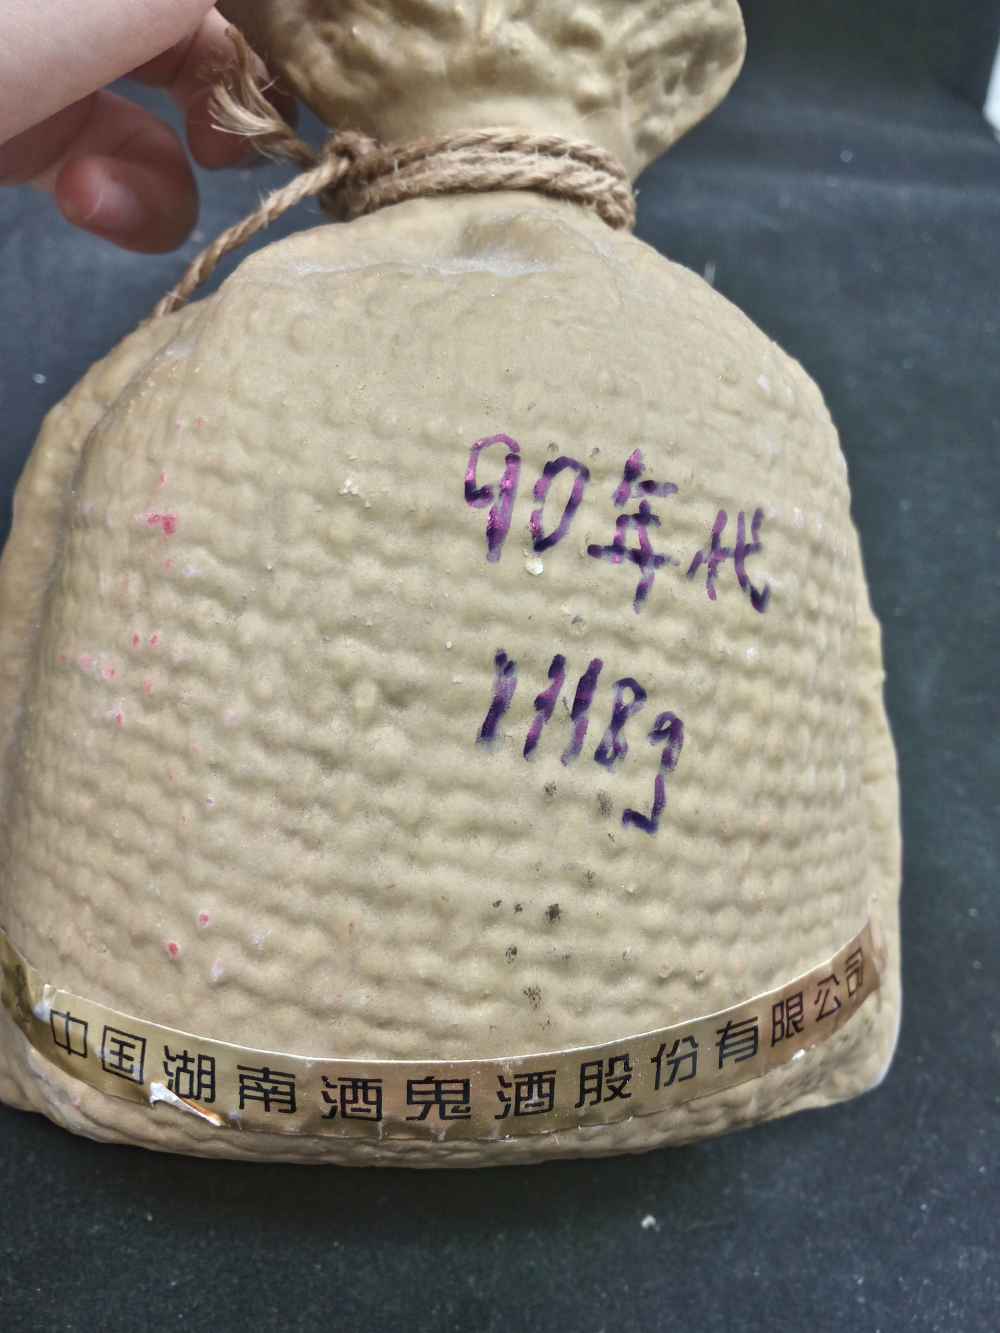 90年代
1118g
中国湖南酒鬼酒股份有限公司